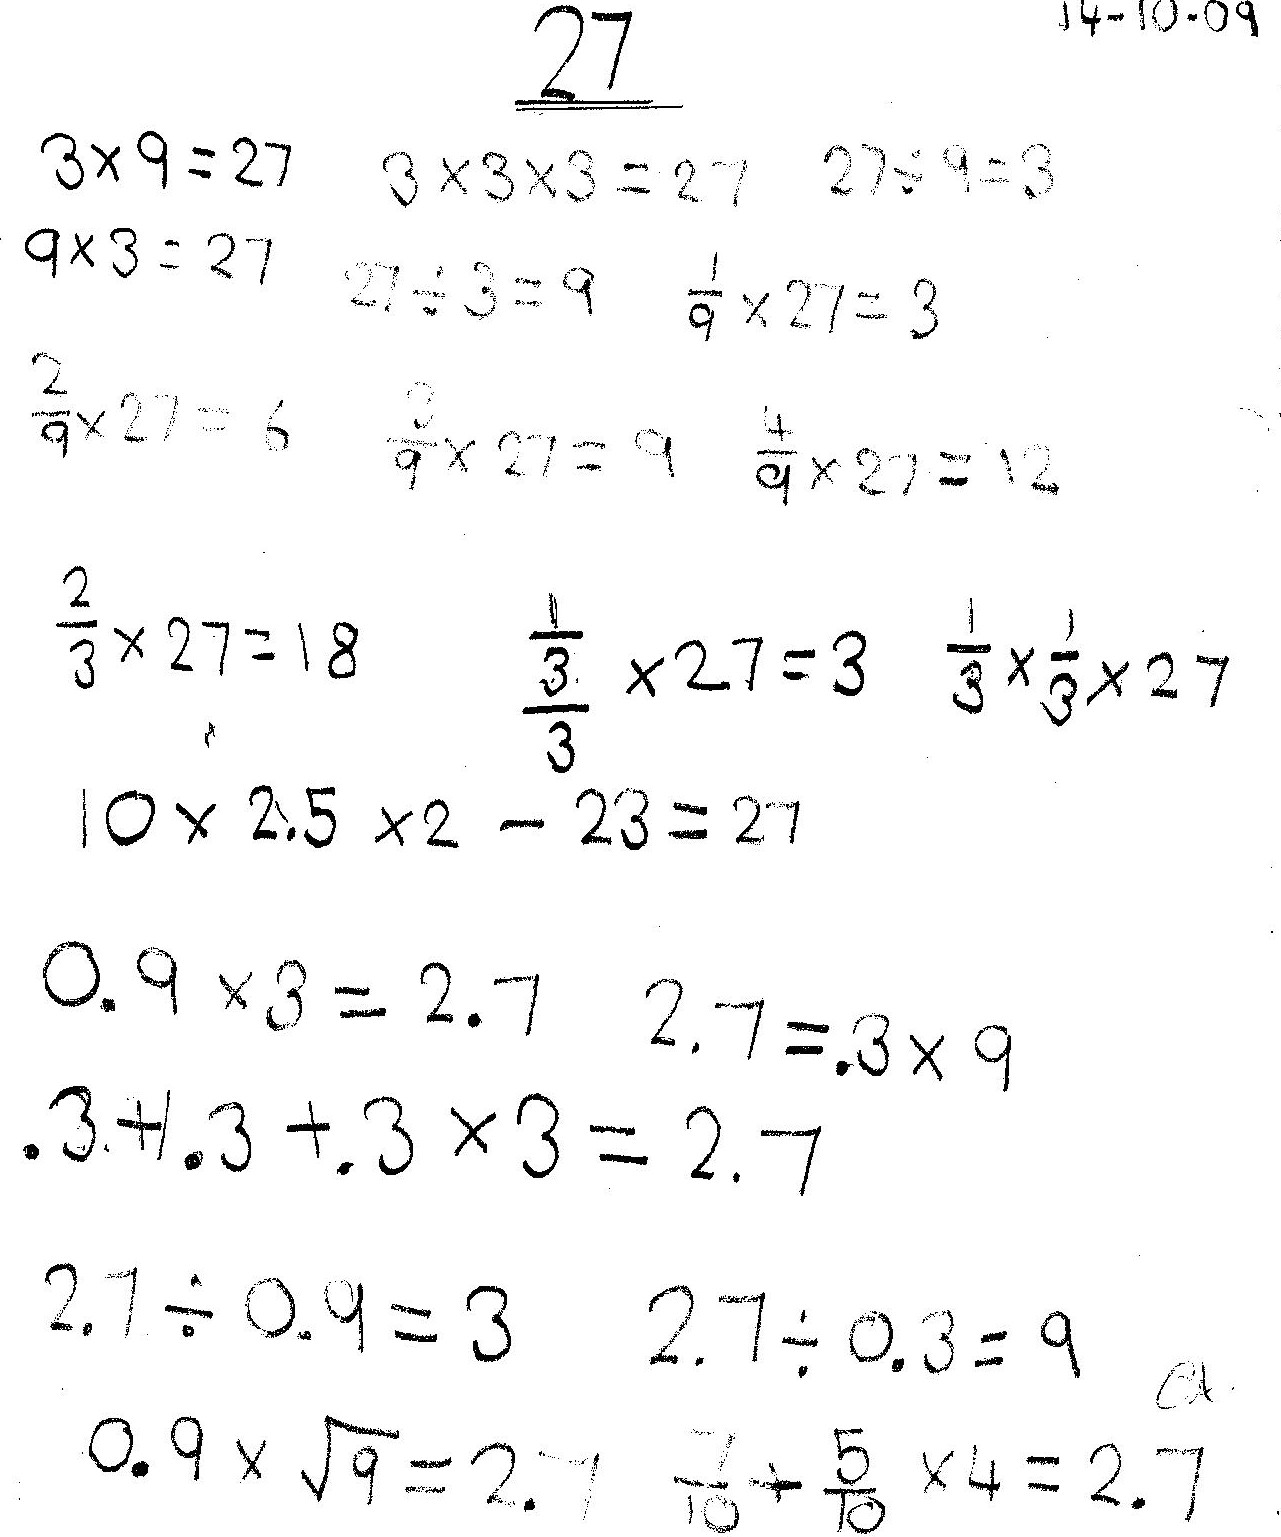 14-10-09
27
3×9=27 3×3×3=27 27÷9=3
9×3=27 27÷3=9 1/9×27=3
2/9×27=6 3/9×27=9 4/9×27=12
2/3×27=18 1/3/3×27=3 1/3×1/3×27
10×2.5×2-23=27
0.9×3=2.7 2.7=.3×9
.3+.3+.3×3=2.7
2.7÷0.9=3 2.7÷0.3=9
0.9×√9=2.7 7/10+5/10×4=2.7